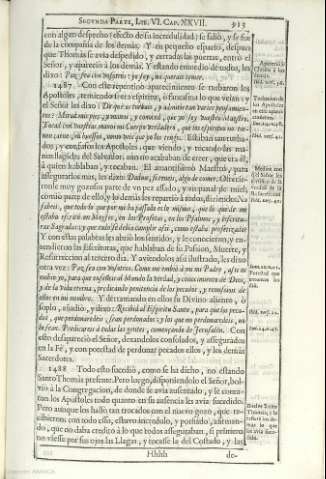 SEGUNDA PARTE, LIB. VI. CAP. XXVII. 913
con algun despecho (efecto de su incredulidad) se salió, y se fue
de la compañia de los demás. Y en pequeño espacio, despues
que Thomás se avia despedido, y cerradas las puertas, entrò el
Señor, y apareciò à los demás. Y estando en medio de todos, les
dixo: Paz sea con vosotros: yo soy, no querais temer.
1487. Con este repentino aparecimiento se turbaron los
Apostoles, temiendo si era espiritu, ò fantasma lo que veían; y
el Señor les dixo: De què os turbais, y admitis tan varios pensamien-
tos? Mirad mis pies, y manos, y conoced, que yo soy vuestro Maestro.
Tocad con vuestras manos mi Cuerpo verdadero, que los espiritus no tie-
nen carne, ni huesos, como veis que yo los tengo. Estaban tan turba-
dos, y confusos los Apostoles, que viendo, y tocando las ma-
nos llagadas del Salvador, aun no acababan de creer, que era él,
à quien hablaban, y tocaban. El amantissimo Maestro, para
assegurarlos mas, les dixo: Dadme, si teneis, algo de comer. Ofrecie-
ronle muy gozosos parte de un pez assado, y un panal de miel;
comiò parte de ello, y lo demás les repartiò à todos, diziendo: No
sabeis, que todo lo que por mi ha passado es lo mismo, que lo que de mi
estaba escrito en Moyses, en los Profetas, en los Psalmos, y Escritu-
ras Sagradas; y que todo se debia cumplir assi, como estaba profetizado?
Y con estas palabras les abriò los sentidos, y le conocieron, y en-
tendieron las Escrituras, que hablaban de su Passion, Muerte, y
Resurreccion al tercero dia. Y aviendolos assi ilustrado, les dixo
otra vez: Paz sea con vosotros. Como me embiò à mi mi Padre, assi os
embio yo, para que enseñeis al Mundo la verdad, y conocimiento de Dios,
y de la vida eterna, predicando penitencia de los pecados, y remission de
ellos en mi nombre. Y derramando en ellos su Divino aliento, ò
soplo, añadiò, y dixo: Recibid al Espiritu Santo, para que los peca-
dos, que perdonareis, sean perdonados; y los que no perdonareis, no
lo sean. Predicareis à todas las gentes, començando de Jerusalèn. Con
esto desapareciò el Señor, dexandolos consolados, y assegurados
en la Fè, y con potestad de perdonar pecados ellos, y los demás
Sacerdotes.
1488 Todo esto sucediò, como se ha dicho, no estando
Santo Thomás presente. Pero luego, disponiendolo el Señor, bol-
viò à la Congregacion, de donde se avia ausentado, y le conta-
ron los Apostoles todo quanto en su ausencia les avia sucedido.
Pero aunque los hallò tan trocados con el nuevo gozo, que re-
cibieron; con todo esso, estuvo incredulo, y porfiado, afirman-
do, que no daria credito à lo que todos asseguraban, si primero
no viesse por sus ojos las Llagas, y tocasse la del Costado, y las
Hhhh
de-